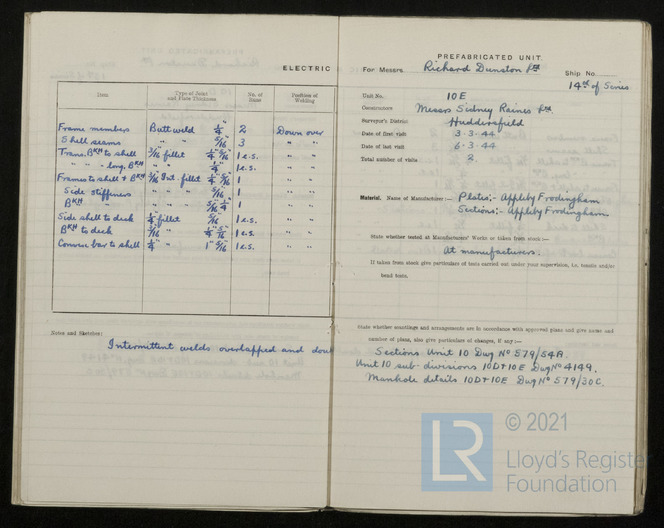 ELECTRIC
Item Type of Joint and Plate Thickness No. of Runs Position of Welding
Frame members Butt weld 1/4" 2 Down over
Shell seams " " 5/16" 3 " "
Trans. BKH to shell 3/16 fillet 1/4" 5/16" 1 e.s. " "
" " " long. BKH " " 1/4" 1 e.s. " "
Frames to shell & BKH 3/16 Int. fillet 1/4" 5/16" 1 " "
Side stiffeners " " 5/16" 1 " "
BKH " " " 5/16" 1/4" 1 " "
Side shell to deck 1/4" fillet 5/16" 1 e.s. " "
BKH to deck 3/16 " 1/4" 5/16" 1 e.s. " "
Convex bar to shell 1/4" " 1" 5/16" 1 e.s. " "
Notes and Sketches:
Intermittent welds overlapped and
PREFABRICATED UNIT.
For Messrs. Richard Dunston Ltd Ship No.
14th of Series
Unit No. 10E
Constructors Messrs Sidney Raines Ltd.
Surveyor's District Huddersfield
Date of first visit 3.3.44
Date of last visit 6.3.44
Total number of visits 2.
Material. Name of Manufacturer:— Plates:- Appleby Frodingham
Sections:- Appleby Frodingham.
State whether tested at Manufacturers' Works or taken from stock:—
At manufacturers.
If taken from stock give particulars of tests carried out under your supervision, i.e. tensile and/or
bend tests.
State whether scantlings and arrangements are in accordance with approved plans and give name and
number of plans, also give particulars of changes, if any:—
Sections Unit 10 Dwg No 579/54A.
Unit 10 sub-divisions 10D+10E Dwg No 4149.
Manhole details 10D+10E Dwg No 579/30C.
LR © 2021
Lloyd's Register
Foundation